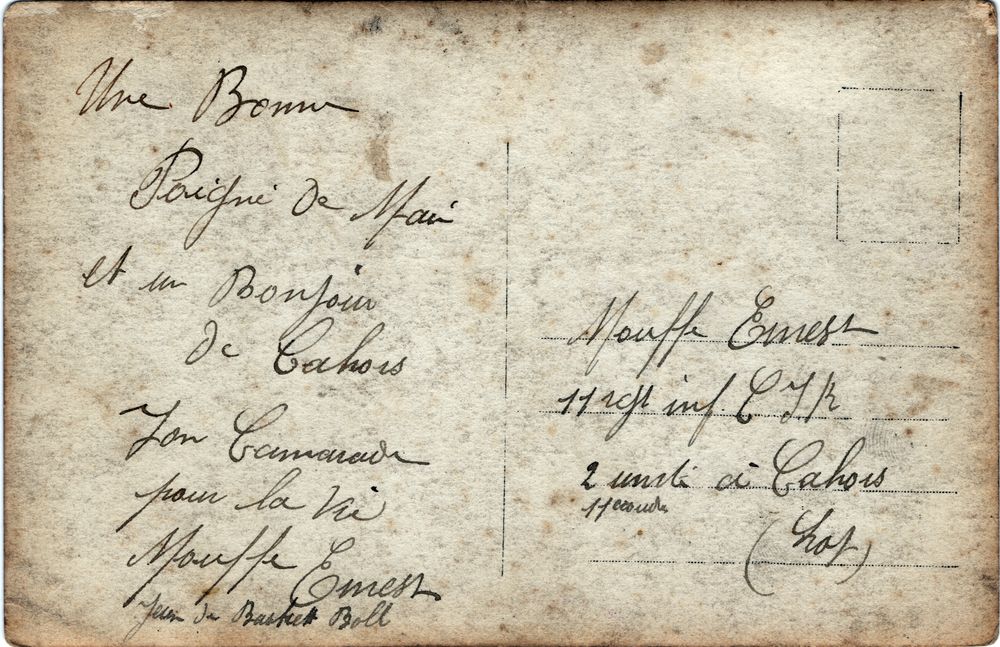 Une Bonne
Poigné de Main
et un Bonjour
de Cahors
Ton Camarade
pour la Vie
Mouffe Ernest
Jeux de Basket Boll
Mouffe Ernest
11 rgt inf. C I R
2 unité à Cahors
(Lot)